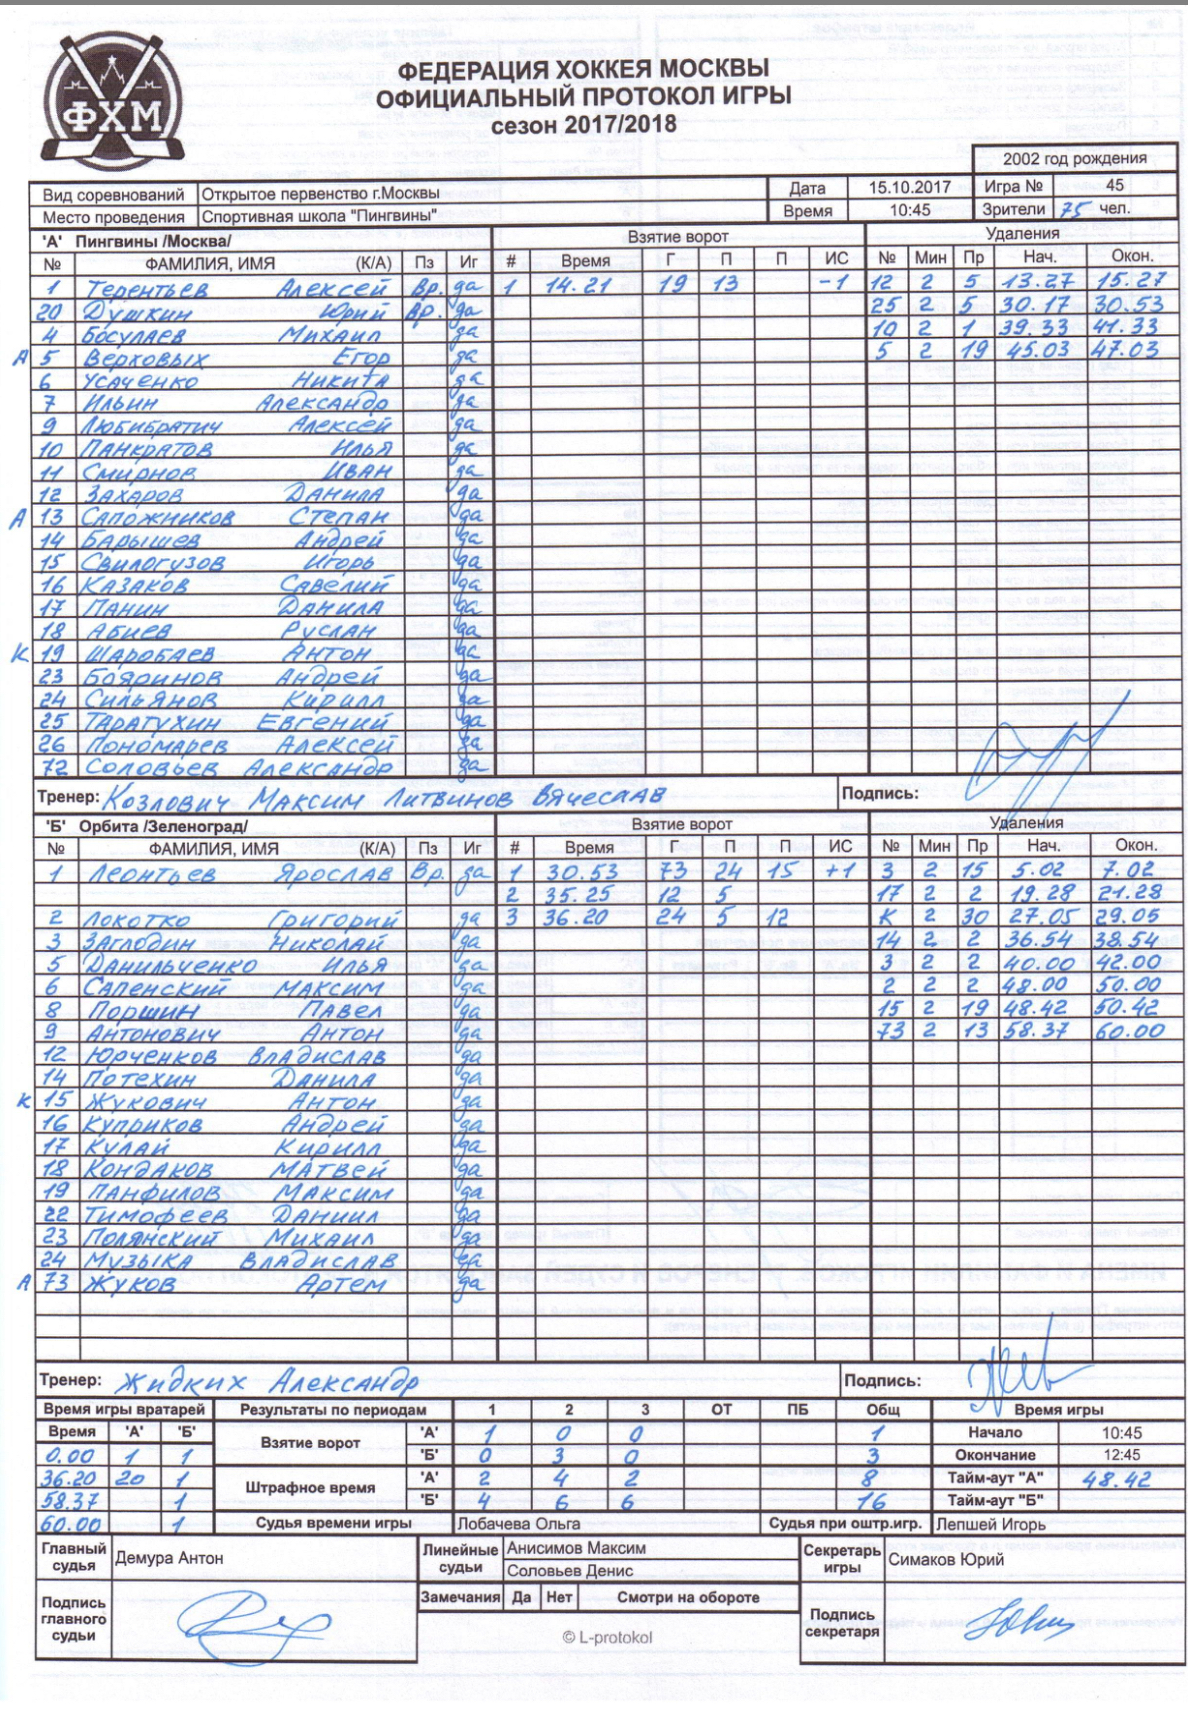 ФХМ
ФЕДЕРАЦИЯ ХОККЕЯ МОСКВЫ
ОФИЦИАЛЬНЫЙ ПРОТОКОЛ ИГРЫ
сезон 2017/2018
2002 год рождения
Вид соревнований Открытое первенство г.Москвы Дата 15.10.2017 Игра № 45
Место проведения Спортивная школа "Пингвины" Время 10:45 Зрители 75 чел.
'А' Пингвины /Москва/ Взятие ворот Удаления
№ ФАМИЛИЯ, ИМЯ (К/А) Пз Иг # Время Г П П ИС № Мин Пр Нач. Окон.
1 Терентьев Алексей Вр. да 1 14.21 19 13 -1 12 2 5 13.27 15.27
20 Душкин Юрий Вр. да 25 2 5 30.17 30.53
4 Босулаев Михаил да 10 2 1 39.33 41.33
А 5 Верховых Егор да 5 2 19 45.03 47.03
6 Усаченко Никита да
7 Ильин Александр да
9 Любибратич Алексей да
10 Панкратов Илья да
11 Смирнов Иван да
12 Захаров Данила да
А 13 Сапожников Степан да
14 Барышев Андрей да
15 Свилогузов Игорь да
16 Казаков Савелий да
17 Панин Данила да
18 Абиев Руслан да
К 19 Шаробаев Антон да
23 Бояринов Андрей да
24 Сильянов Кирилл да
25 Таратухин Евгений да
26 Пономарев Алексей да
72 Соловьев Александр да
Тренер: Козлович Максим Литвинов Вячеслав Подпись:
'Б' Орбита /Зеленоград/ Взятие ворот Удаления
№ ФАМИЛИЯ, ИМЯ (К/А) Пз Иг # Время Г П П ИС № Мин Пр Нач. Окон.
1 Леонтьев Ярослав Вр. да 1 30.53 73 24 15 +1 3 2 15 5.02 7.02
2 35.25 12 5 17 2 2 19.28 21.28
2 Локотко Григорий да 3 36.20 24 5 12 К 2 30 27.05 29.05
3 Заглодин Николай да 14 2 2 36.54 38.54
5 Данильченко Илья да 3 2 2 40.00 42.00
6 Сапенский Максим да 2 2 2 48.00 50.00
8 Поршин Павел да 15 2 19 48.42 50.42
9 Антонович Антон да 73 2 13 58.37 60.00
12 Юрченков Владислав да
14 Потехин Данила да
К 15 Жукович Антон да
16 Куприков Андрей да
17 Кулай Кирилл да
18 Кондаков Матвей да
19 Панфилов Максим да
22 Тимофеев Даниил да
23 Полянский Михаил да
24 Музыка Владислав да
А 73 Жуков Артем да
Тренер: Жидких Александр Подпись:
Время игры вратарей Результаты по периодам 1 2 3 ОТ ПБ Общ Время игры
Время 'А' 'Б' Взятие ворот 'А' 1 0 0 1 Начало 10:45
0.00 1 1 'Б' 0 3 0 3 Окончание 12:45
36.20 20 1 Штрафное время 'А' 2 4 2 8 Тайм-аут "А" 48.42
58.37 1 'Б' 4 6 6 16 Тайм-аут "Б"
60.00 1 Судья времени игры Лобачева Ольга Судья при оштр.игр. Лепшей Игорь
Главный судья Демура Антон Линейные судьи Анисимов Максим Секретарь игры Симаков Юрий
Соловьев Денис
Замечания Да Нет Смотри на обороте
Подпись главного судьи Подпись секретаря
© L-protokol